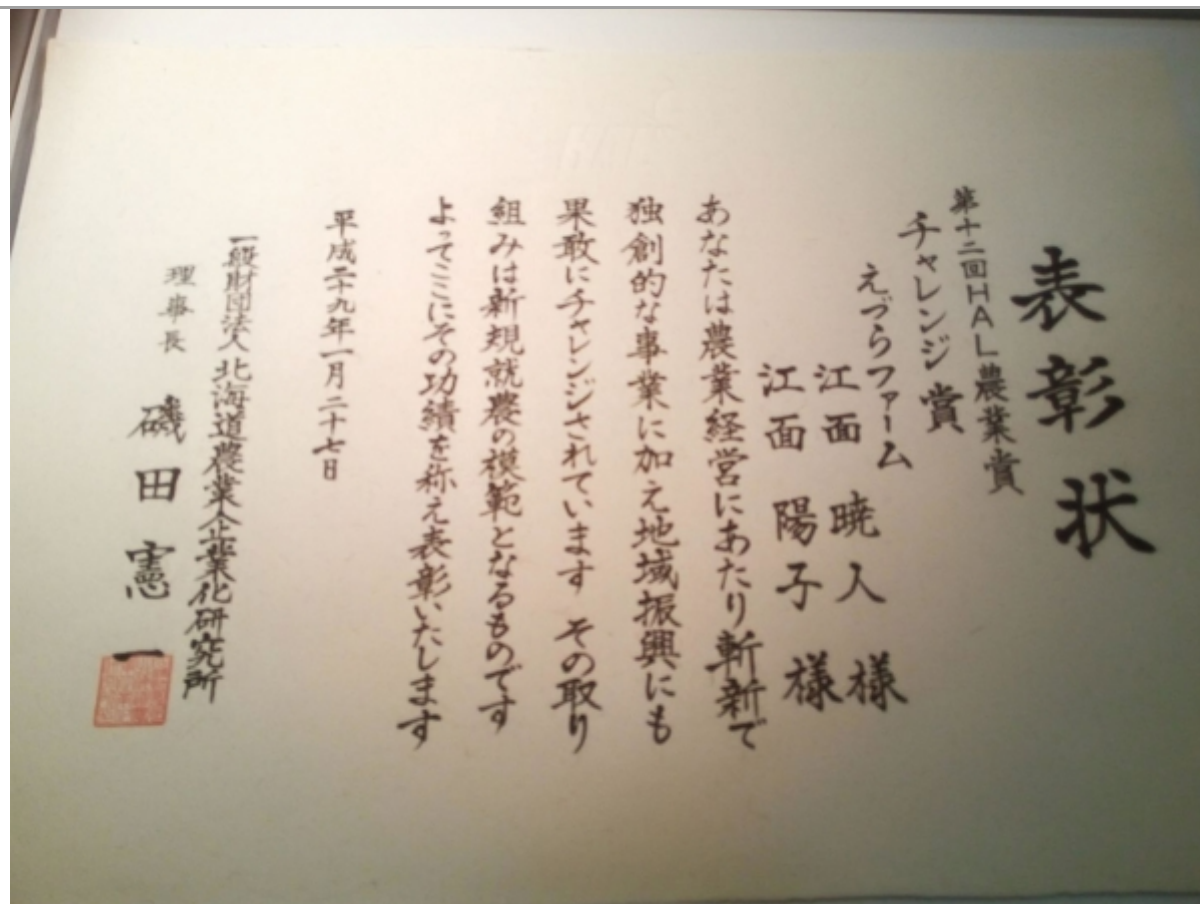 表彰状
第十二回HAL農業賞
チャレンジ賞
えづらファーム
江面 暁人 様
江面 陽子 様
あなたは農業経営にあたり斬新で
独創的な事業に加え地域振興にも
果敢にチャレンジされています その取り
組みは新規就農の模範となるものです
よってここにその功績を称え表彰いたします
平成二十九年一月二十七日
一般財団法人 北海道農業企業化研究所
理事長 磯田憲一